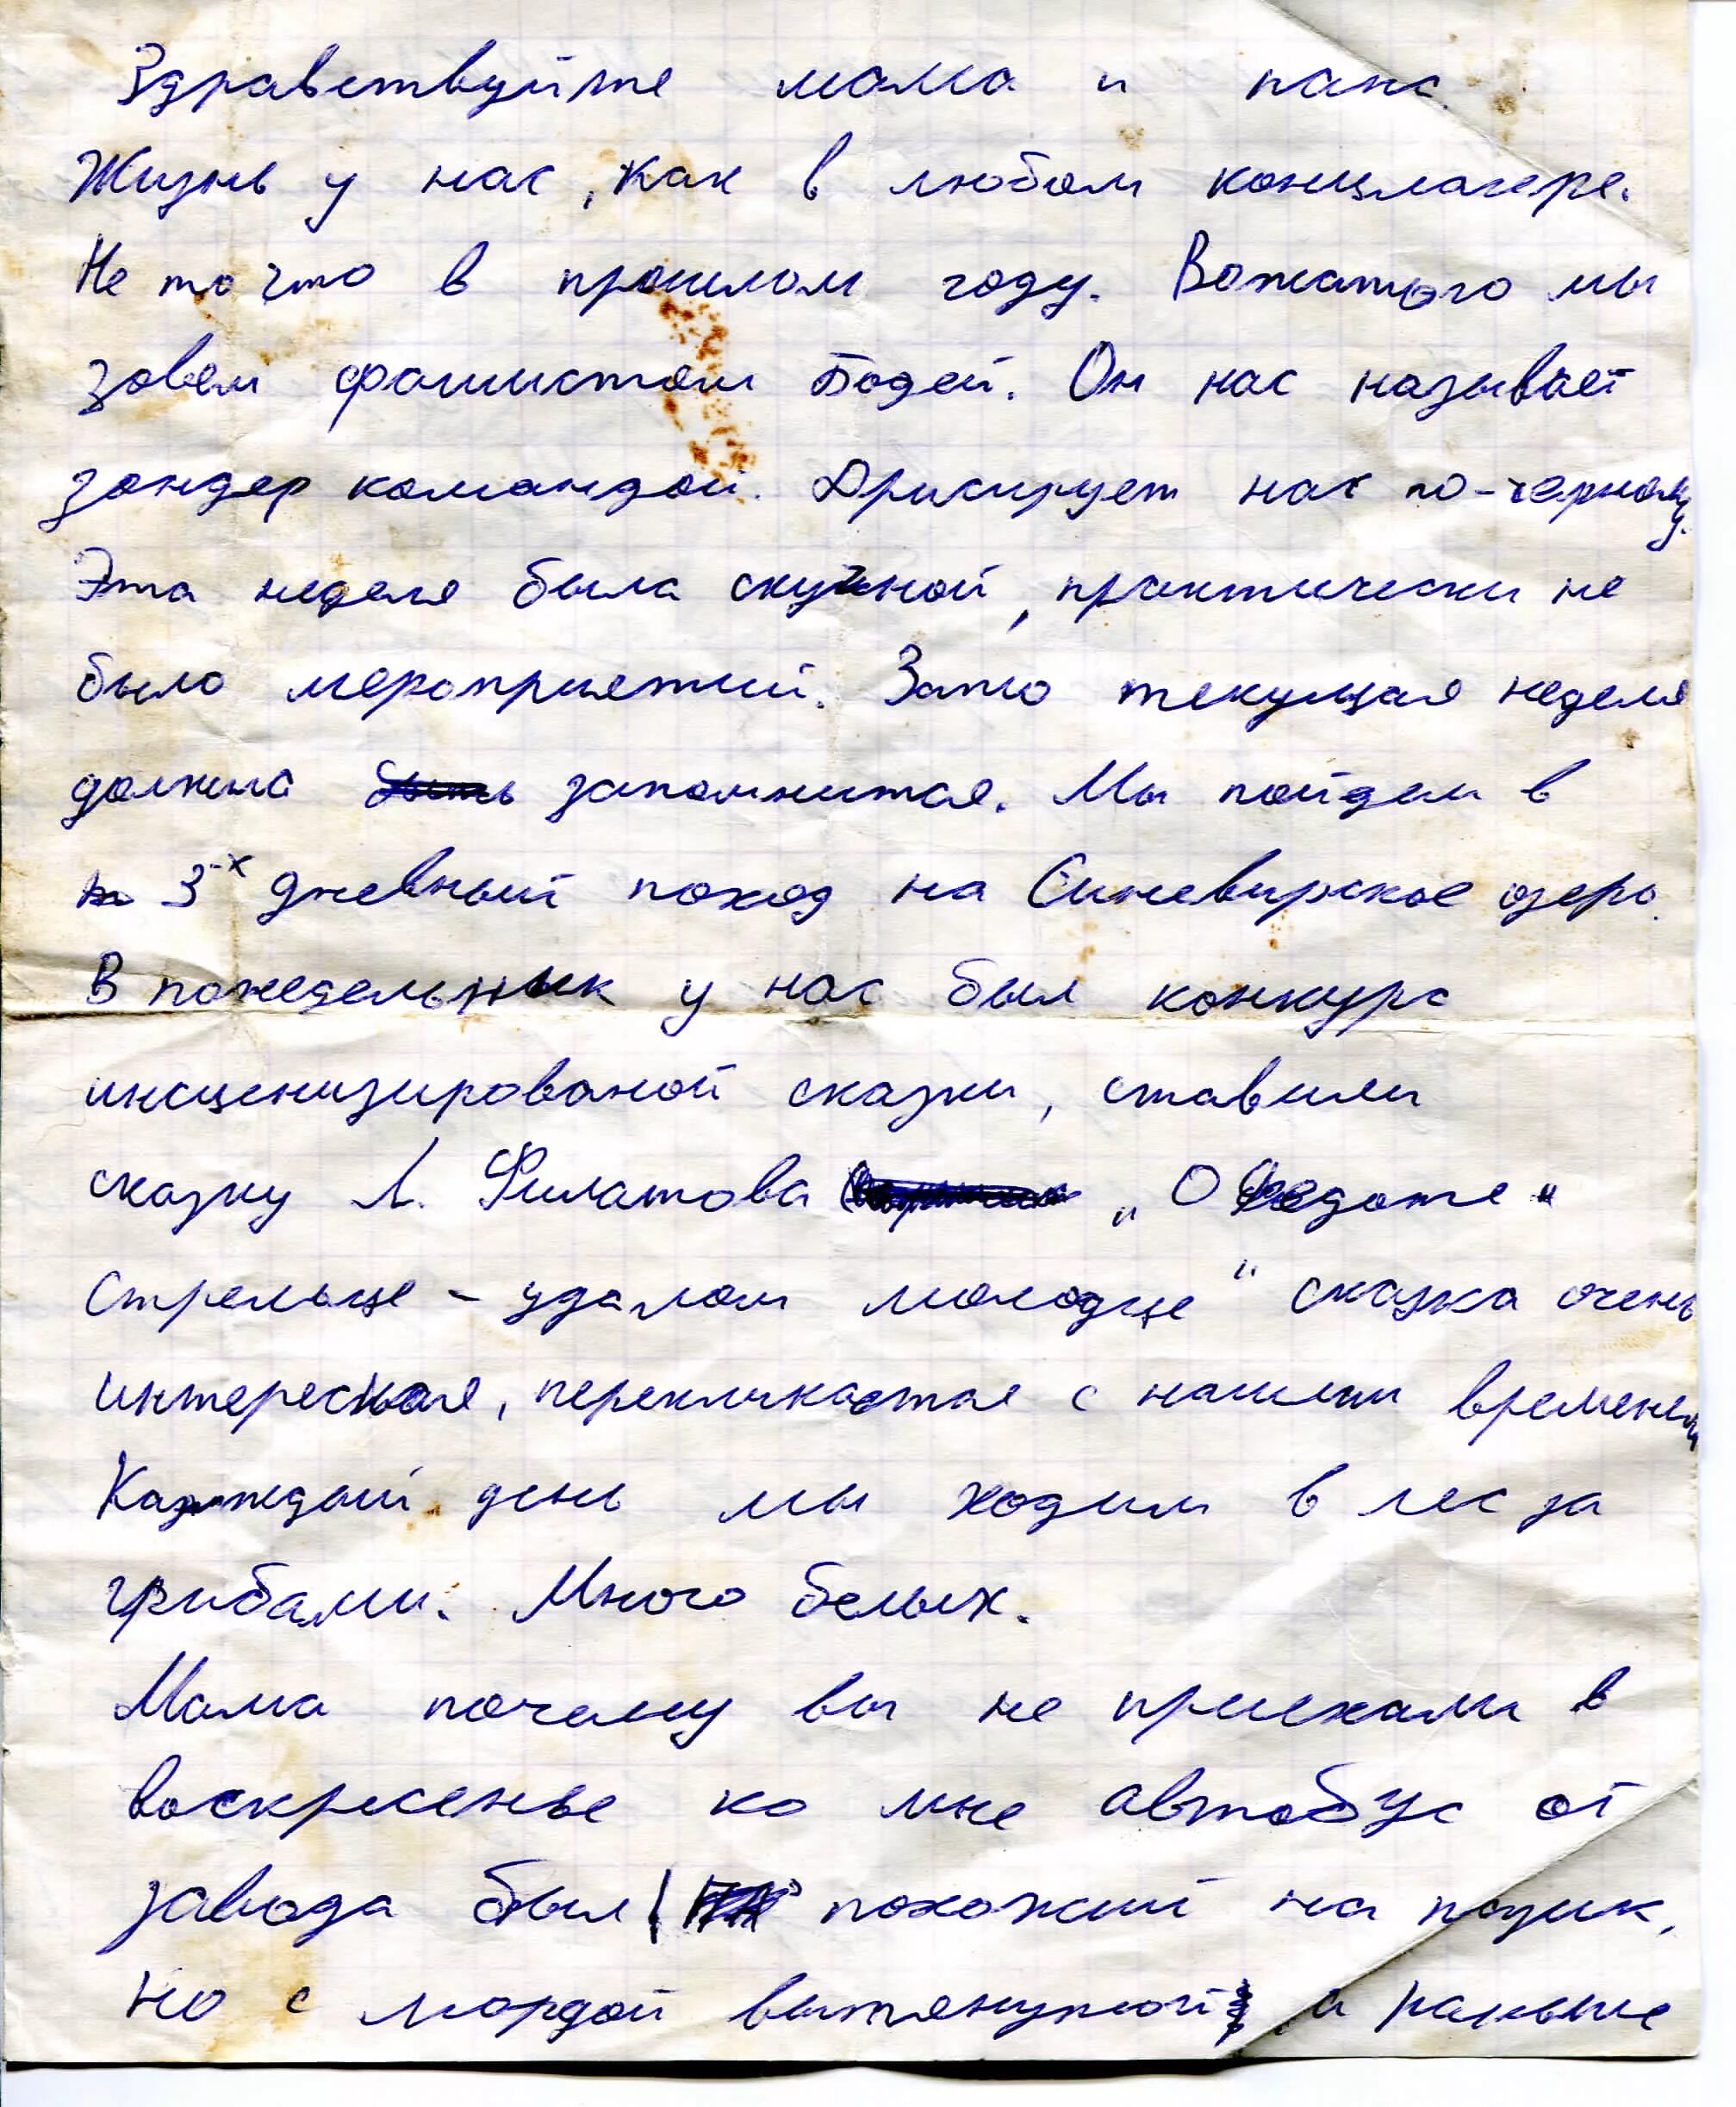 Здравствуйте мама и папа
Жизнь у нас, как в любом концлагере.
Не то что в прошлом году. Вожатого мы
зовем фашистом Бодей. Он нас называет
зондер командой. Дрисирует нас по-черному.
Эта неделя была скучной, практически не
было мероприятий. Зато текущая неделя
должна быть запомнится. Мы пойдем в
3-х дневный поход на Синевирское озеро.
В понедельник у нас был конкурс
инсценизированой сказки, ставили
сказку Л. Филатова „О Федоте
Стрельце - удалом молодце" сказка очень
интересная, перекликается с нашим временем
Каждый день мы ходим в лес за
грибами. Много белых.
Мама почему вы не приехали в
воскресенье ко мне автобус от
завода был похожий на пазик,
но с мордой вытянутой, а раньше